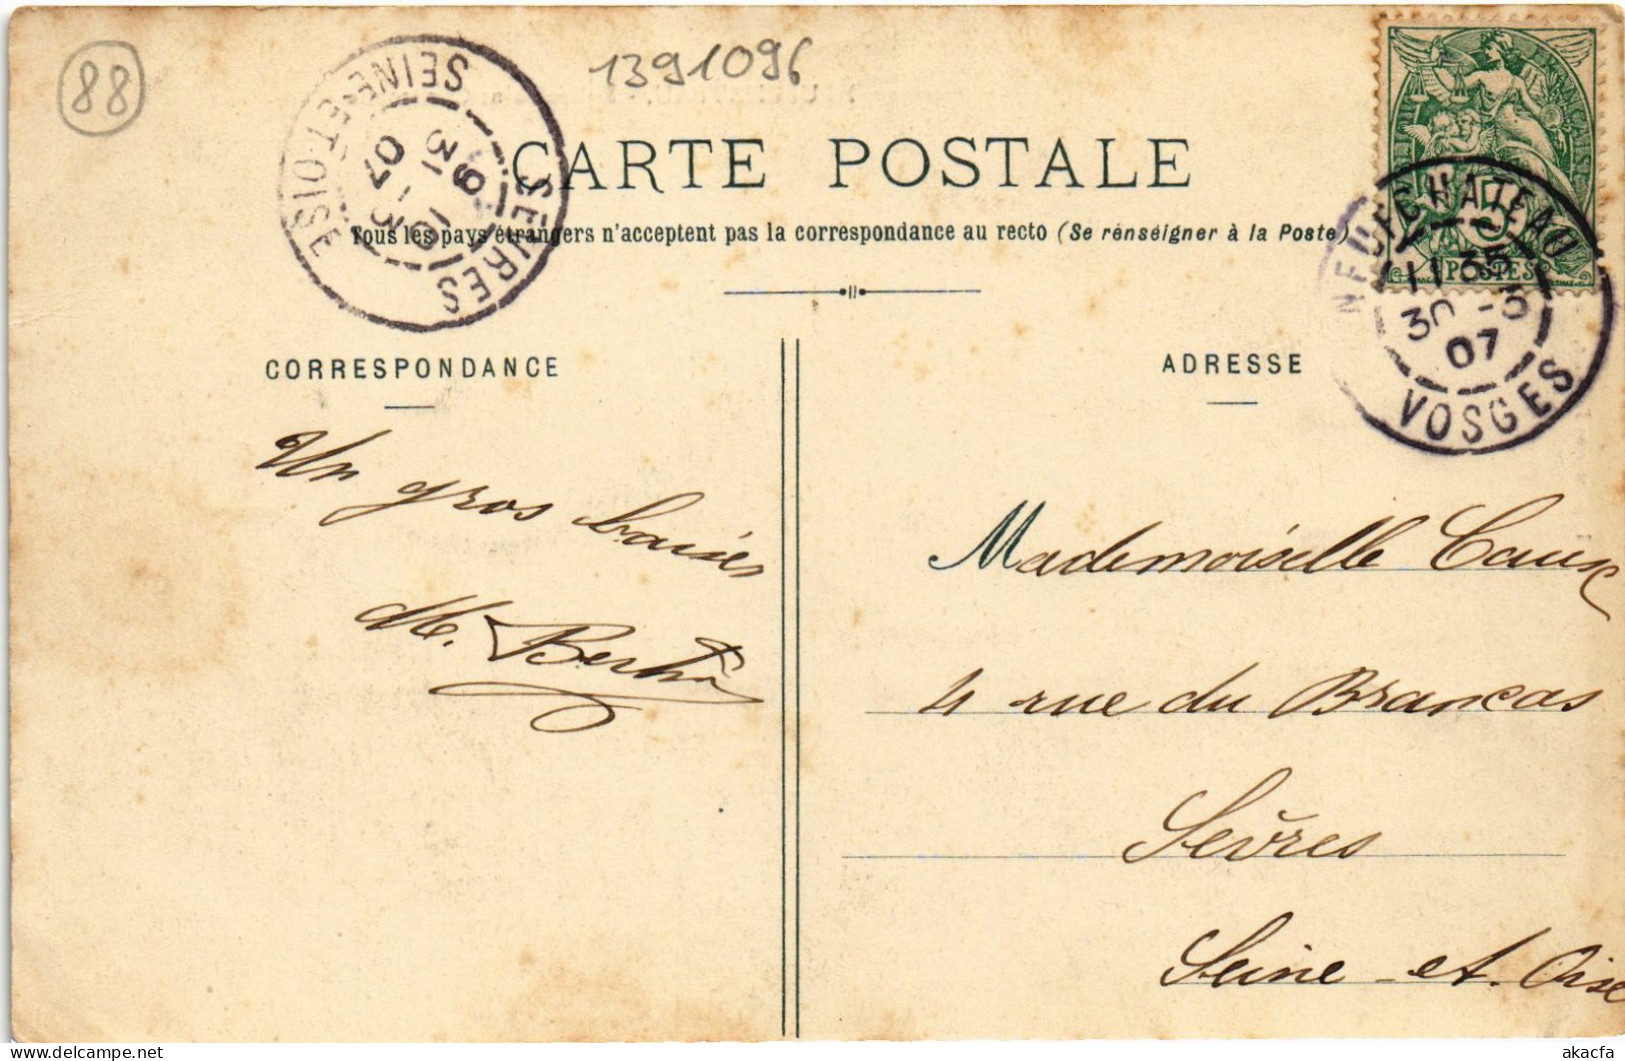 88
1391096
SEINE-ET-OISE
9 10
31 -3
07
SÈVRES
CARTE POSTALE
Tous les pays étrangers n'acceptent pas la correspondance au recto (Se renseigner à la Poste)
POSTES
NEUFCHATEAU
11 35
30 -3
07
VOSGES
CORRESPONDANCE
ADRESSE
Un gros baiser
M. Berthe
Mademoiselle Caux
4 rue du Brancas
Sèvres
Seine et. Oise
akacfa